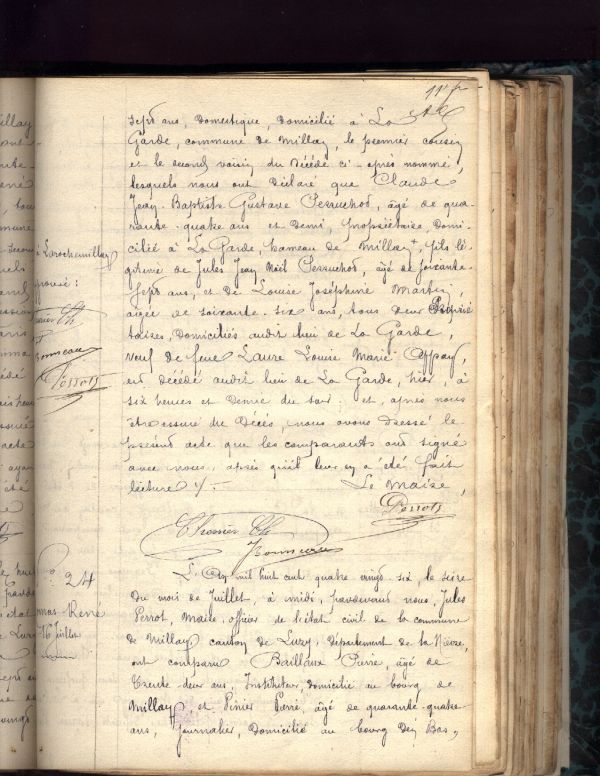 11e f.
sept ans, domestique, domicilié à La
Garde, commune de Millay, le premier cousin
et le second voisin du décédé ci-après nommé,
lesquels nous ont déclaré que Claude
Jean-Baptiste Gustave Perruchot, âgé de qua-
rante-quatre ans et demi, propriétaire, domi-
cilié à La Garde, hameau de Millay, fils lé-
gitime de Jules Jean Noël Perruchot, âgé de soixante-
sept ans, et de Louise Joséphine Martin,
âgée de soixante-six ans, tous deux
taires, domiciliés audit lieu de La Garde,
veuf de feue Laure Louise Marie Appay,
est décédé audit lieu de La Garde, hier, à
six heures et demie du soir: et, après nous
être assuré du décès, nous avons dressé le
présent acte que les comparants ont signé
avec nous, après qu'il leur en a été fait
lecture ./.
Le Maire,
Perrot
Bonneau
L'an mil huit cent quatre vingt-six le seize
du mois de Juillet, à midi, pardevant nous, Jules
Perrot, Maire, officier de l'état civil de la commune
de Millay, canton de Luzy, département de la Nièvre,
ont comparu Baillaux Pierre, âgé de
trente deux ans, Instituteur, domicilié au bourg de
Millay, et Pinier Pierre, âgé de quarante-quatre
ans, journalier domicilié au bourg du Bas,
à Larochemillay
Bonneau
Perrot
No. 24
René
16 Juillet